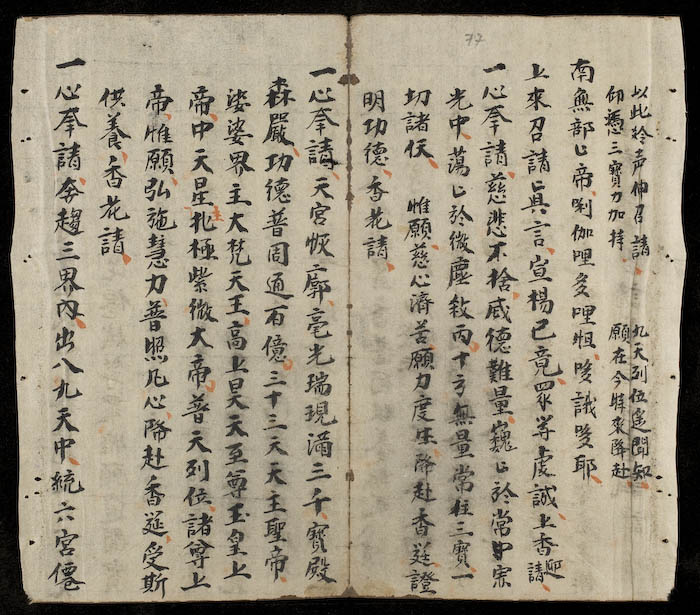 以此鈴声伸召請 九天列位遙聞知
仰憑三寶力加持 願在今時來降赴
南無部𠃊帝唎伽哩多哩怛哆誐哆耶
上來召請𠃊真言宣揚已竟眾等虔誠上香迎請
一心奉請慈悲不捨威德難量巍𠃊於常寂
光中蕩𠃊於微塵
十方無量常住三寶一
切諸仸 惟願慈心濟苦願力度生降赴香筵證
明功德香花請
一心奉請天宮恢廓毫光瑞現滿三千寶殿
森嚴功德普周通百億三十三天天主聖帝
娑婆界主大梵天王高上昊天至尊玉皇上
帝中天星主北極紫微大帝普天列位諸尊上
帝惟願弘施慧力普照凡心降赴香筵受斯
供養香花請
一心奉請分趨三界內出八九天中統六宮僊
77